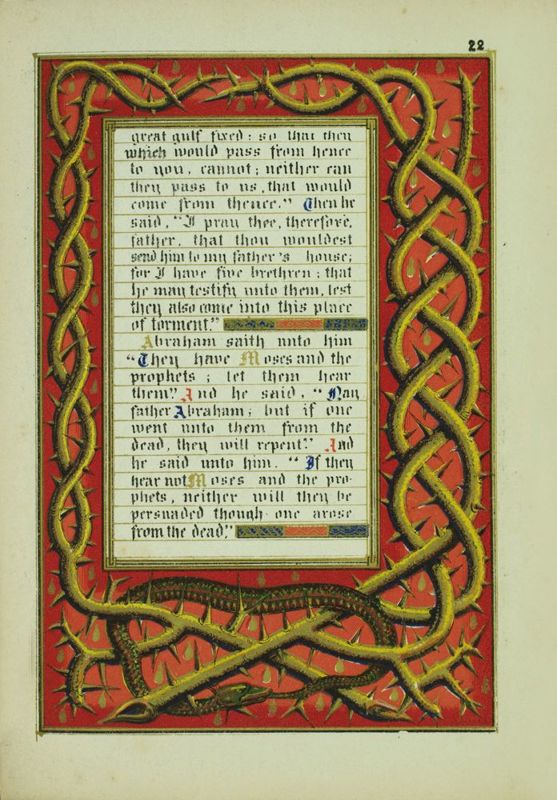 22
great gulf fixed: so that they
which would pass from hence
to you, cannot; neither can
they pass to us, that would
come from thence." Then he
said, "I pray thee, therefore,
father, that thou wouldest
send him to my father's house;
for I have five brethren; that
he may testify unto them, lest
they also come into this place
of torment."
Abraham saith unto him
"They have Moses and the
prophets; let them hear
them." And he said, "Nay
father Abraham; but if one
went unto them from the
dead, they will repent." And
he said unto him. "If they
hear not Moses and the pro-
phets, neither will they be
persuaded though one arose
from the dead."